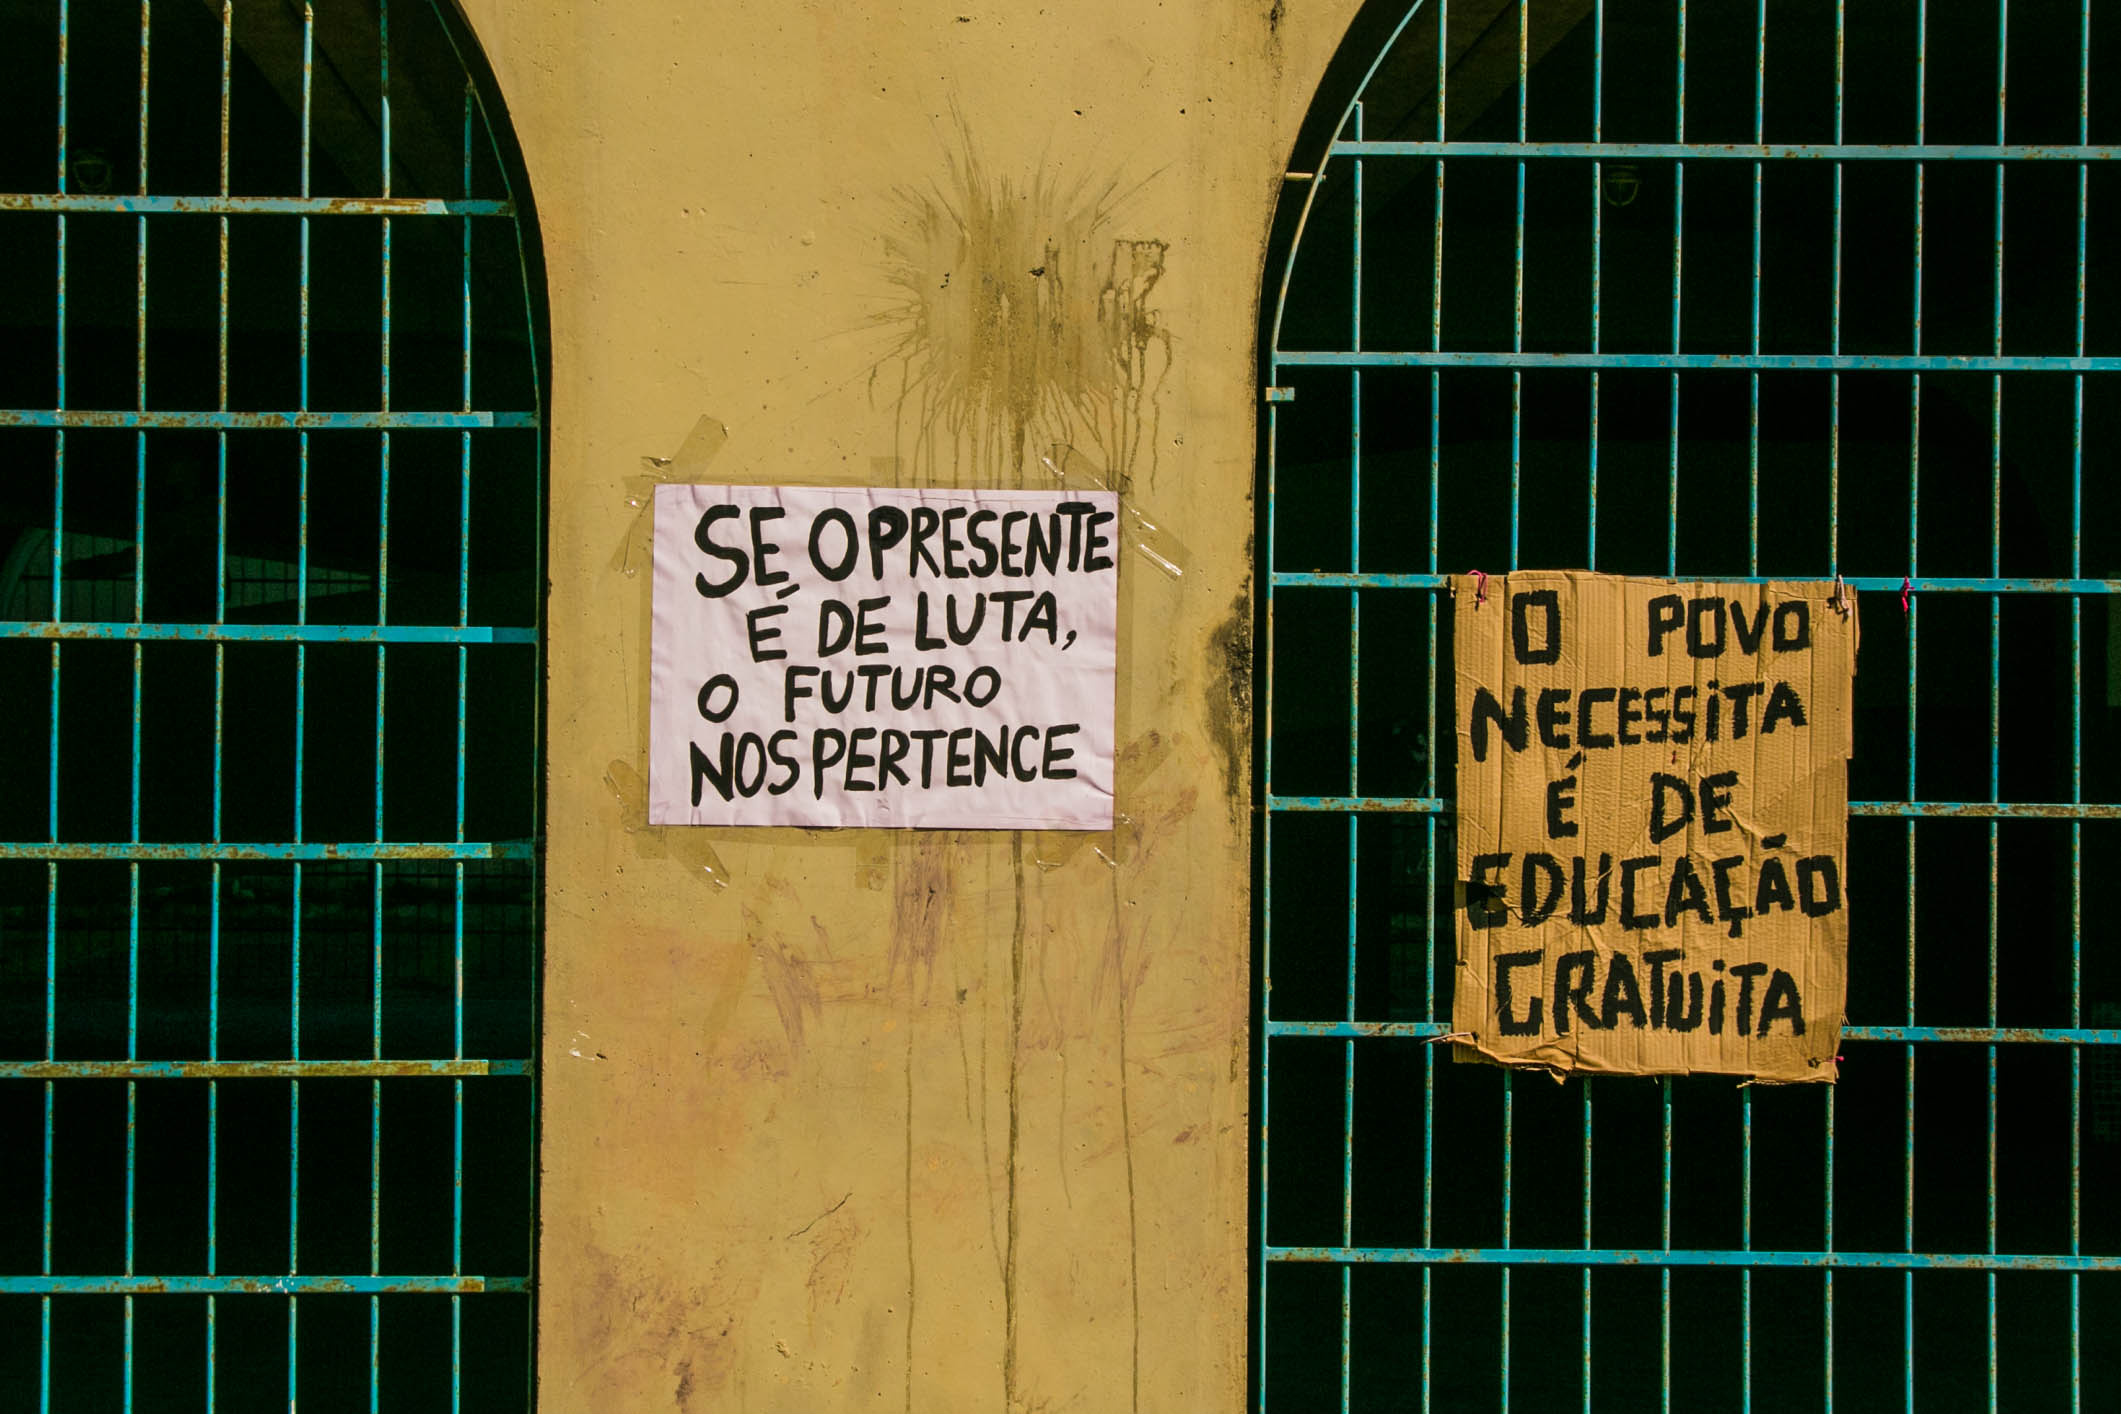 SE O PRESENTE
É DE LUTA,
O FUTURO
NOS PERTENCE
O POVO
NECESSITA
É DE
EDUCAÇÃO
GRATUITA